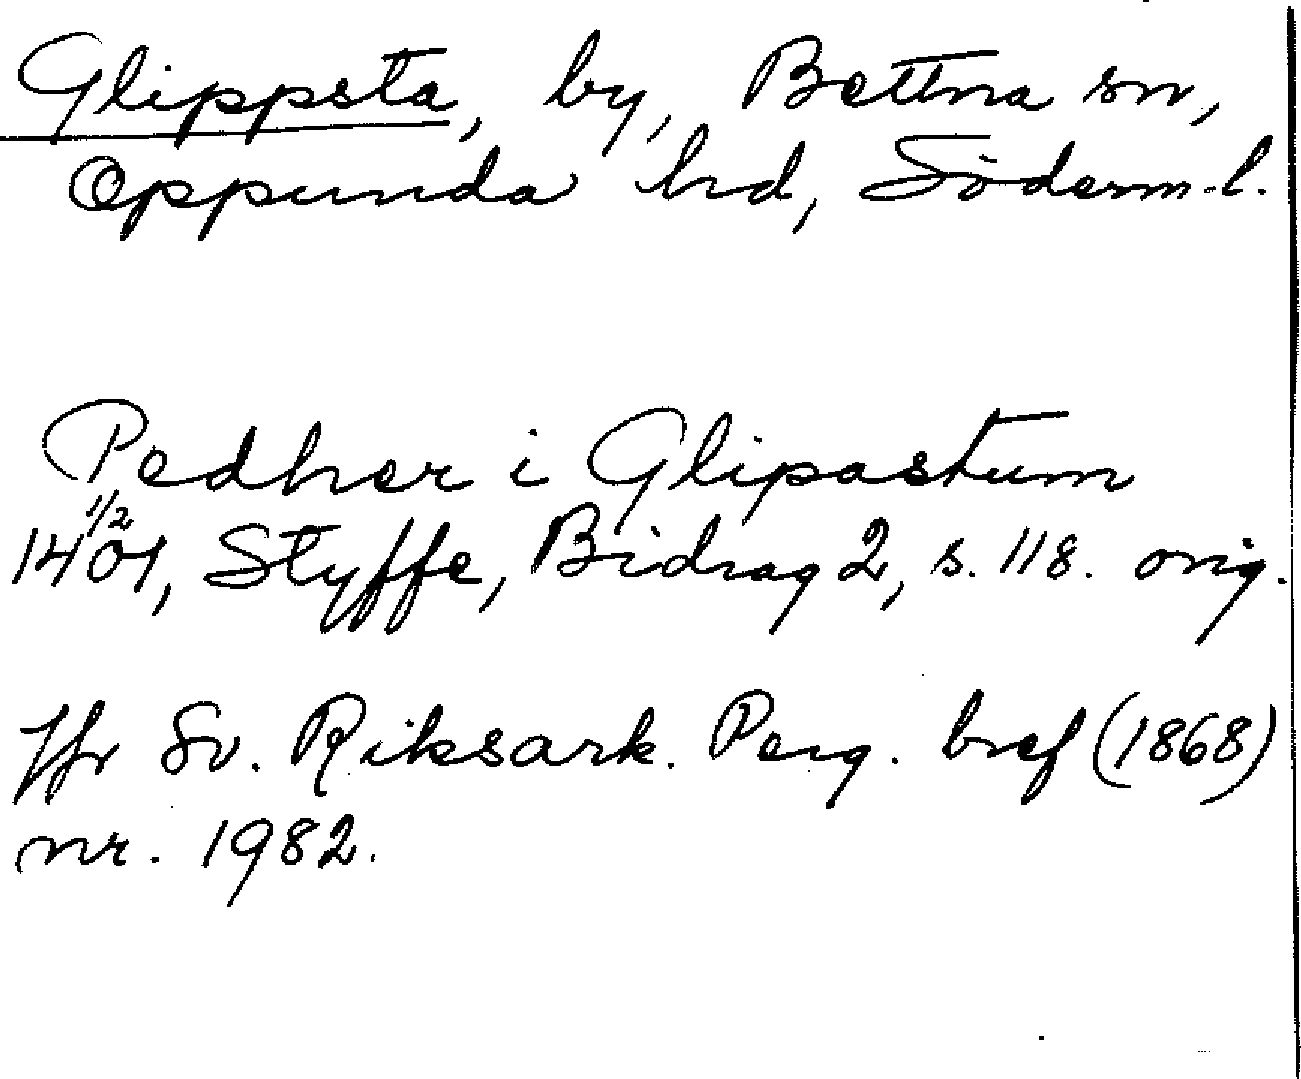 Glippsta, by, Bettna sn,
Oppunda hd, Söderm. l.
Pedher i Glipastum
14 1/2 01, Styffe, Bidrag 2, s. 118. orig.
Jfr Sv. Riksark. Perg. bref (1868)
nr. 1982.